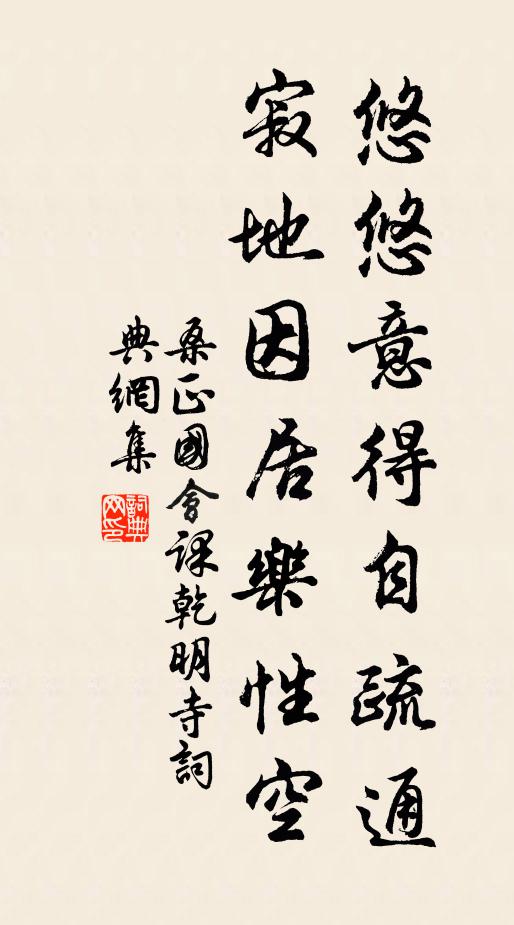 悠悠意得自疏通
寂地因居樂性空
桑正國會課乾明寺詞
典網集
詞典
网印